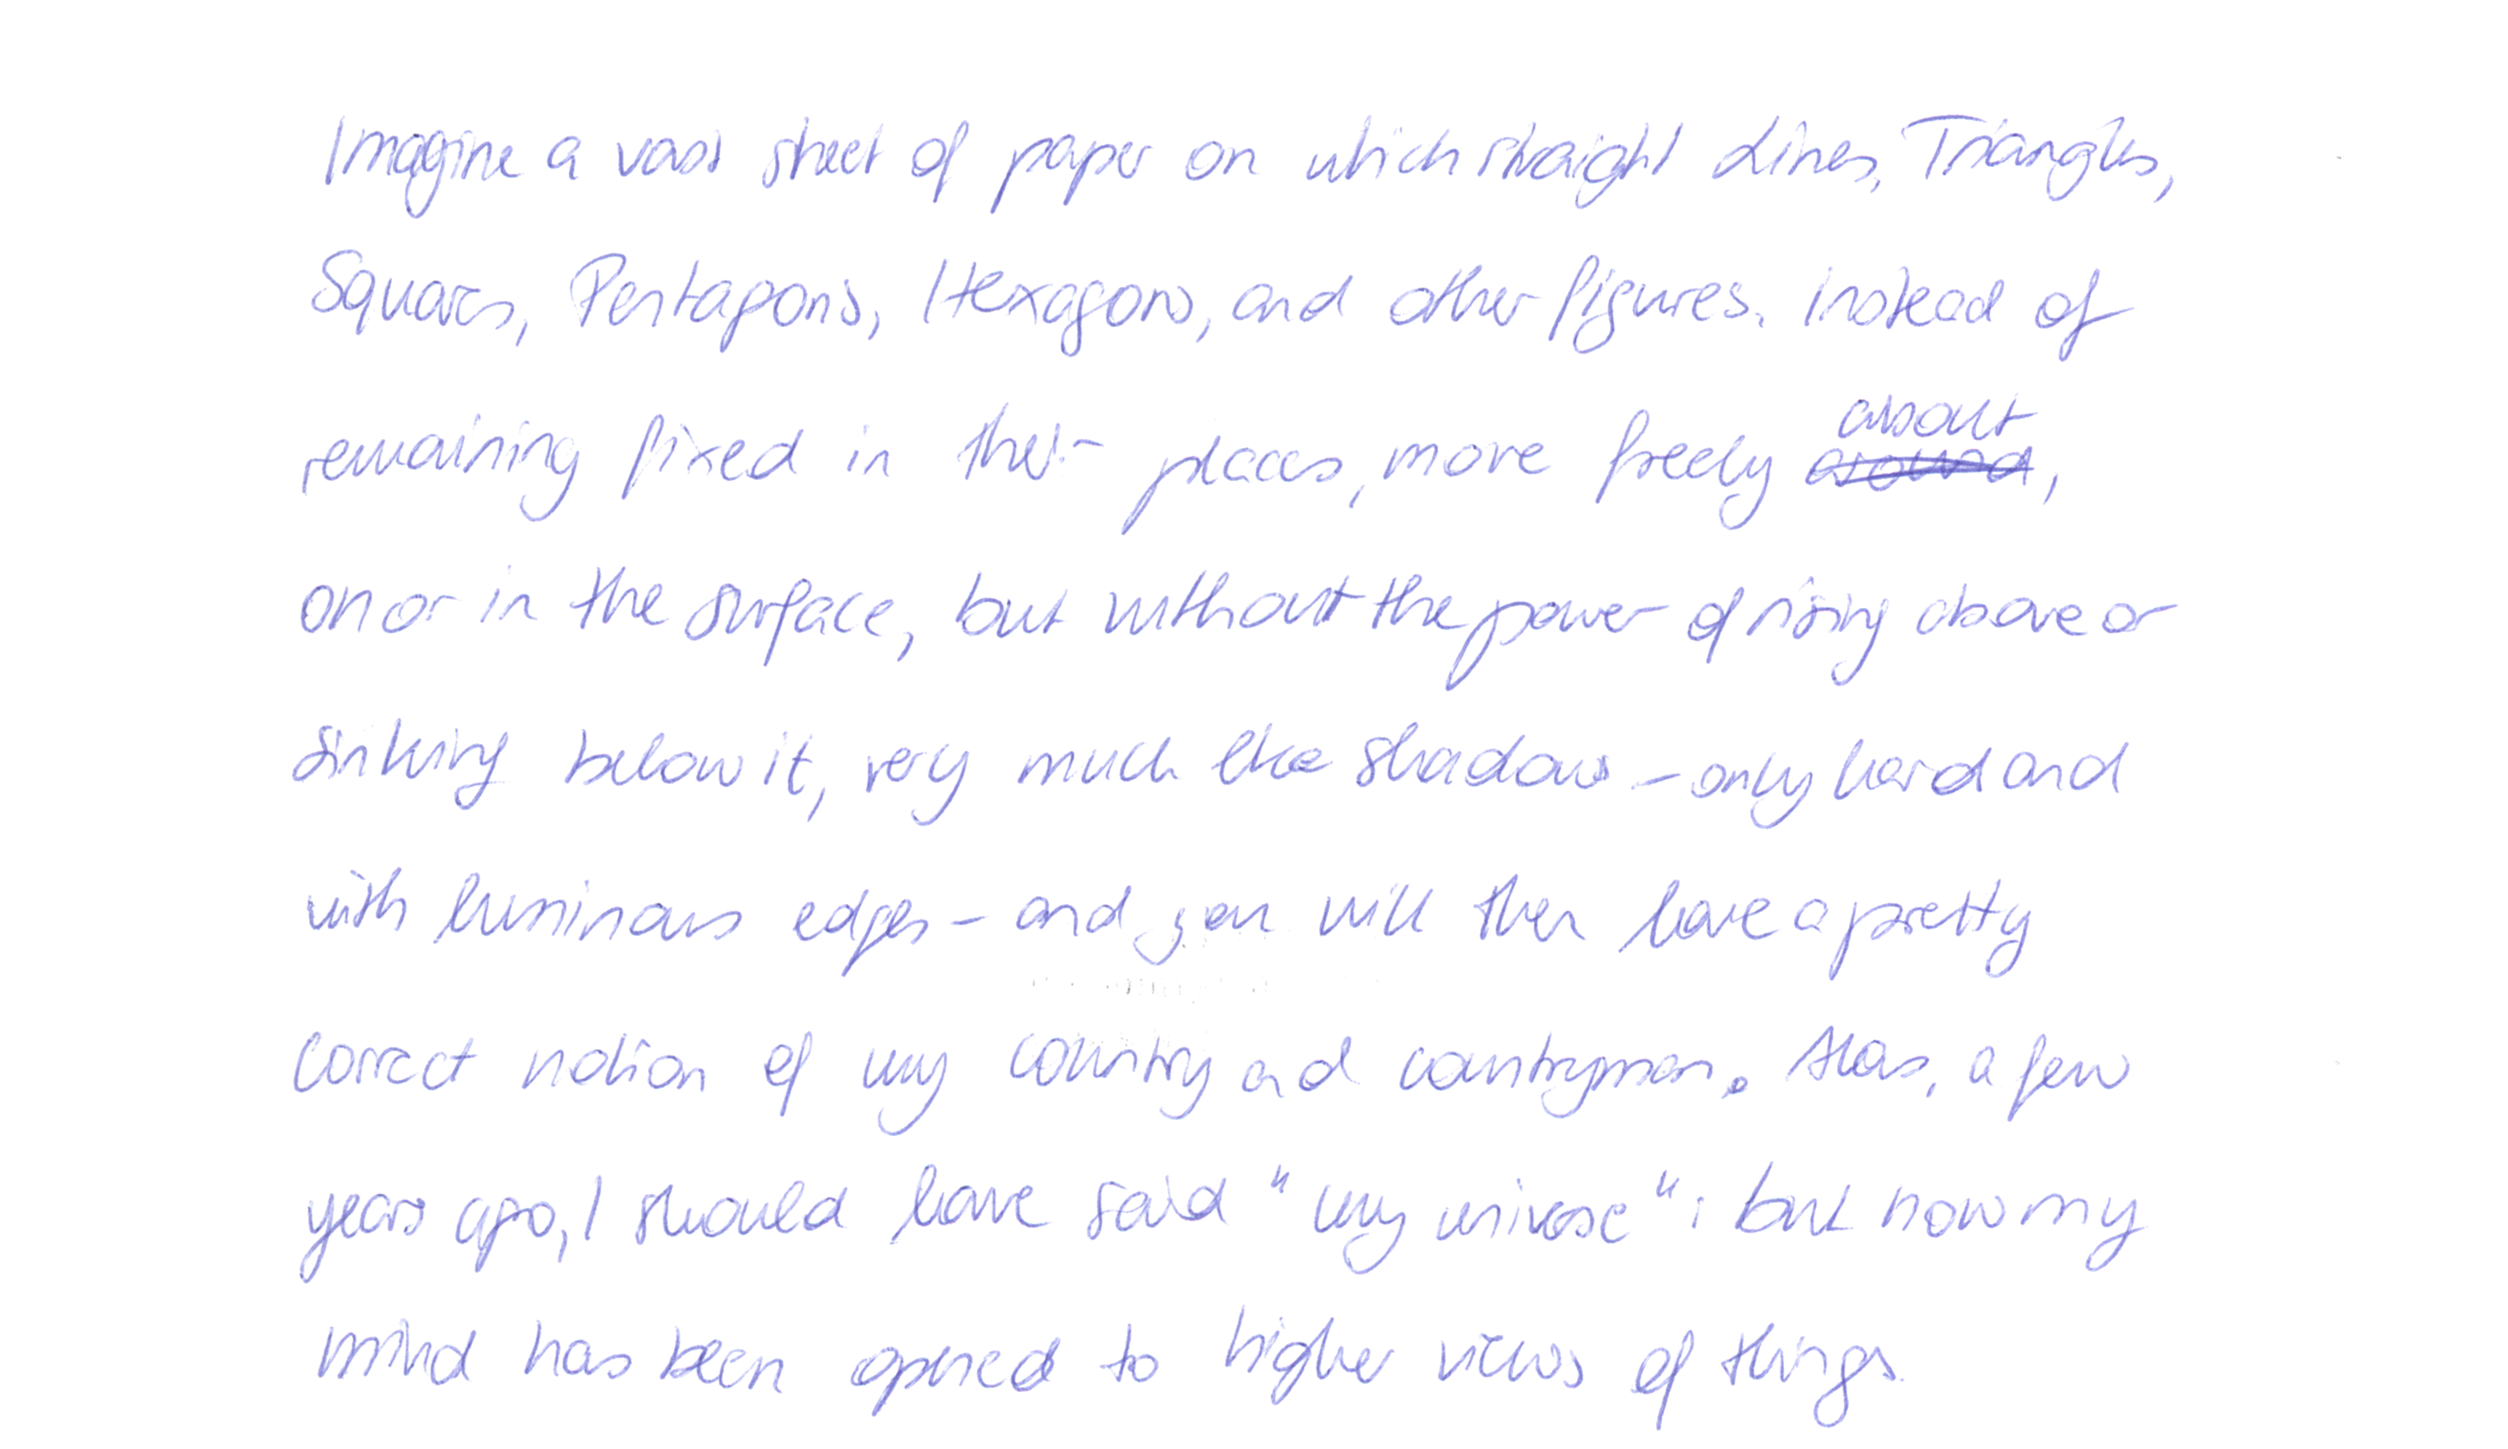 Imagine a vast sheet of paper on which straight Lines, Triangles,
Squares, Pentagons, Hexagons, and other figures, instead of
remaining fixed in their places, move freely about
around,
on or in the surface, but without the power of rising above or
sinking below it, very much like shadows - only hard and
with luminous edges - and you will then have a pretty
correct notion of my country and countrymen. Alas, a few
years ago, I should have said "my universe": but now my
mind has been opened to higher views of things.